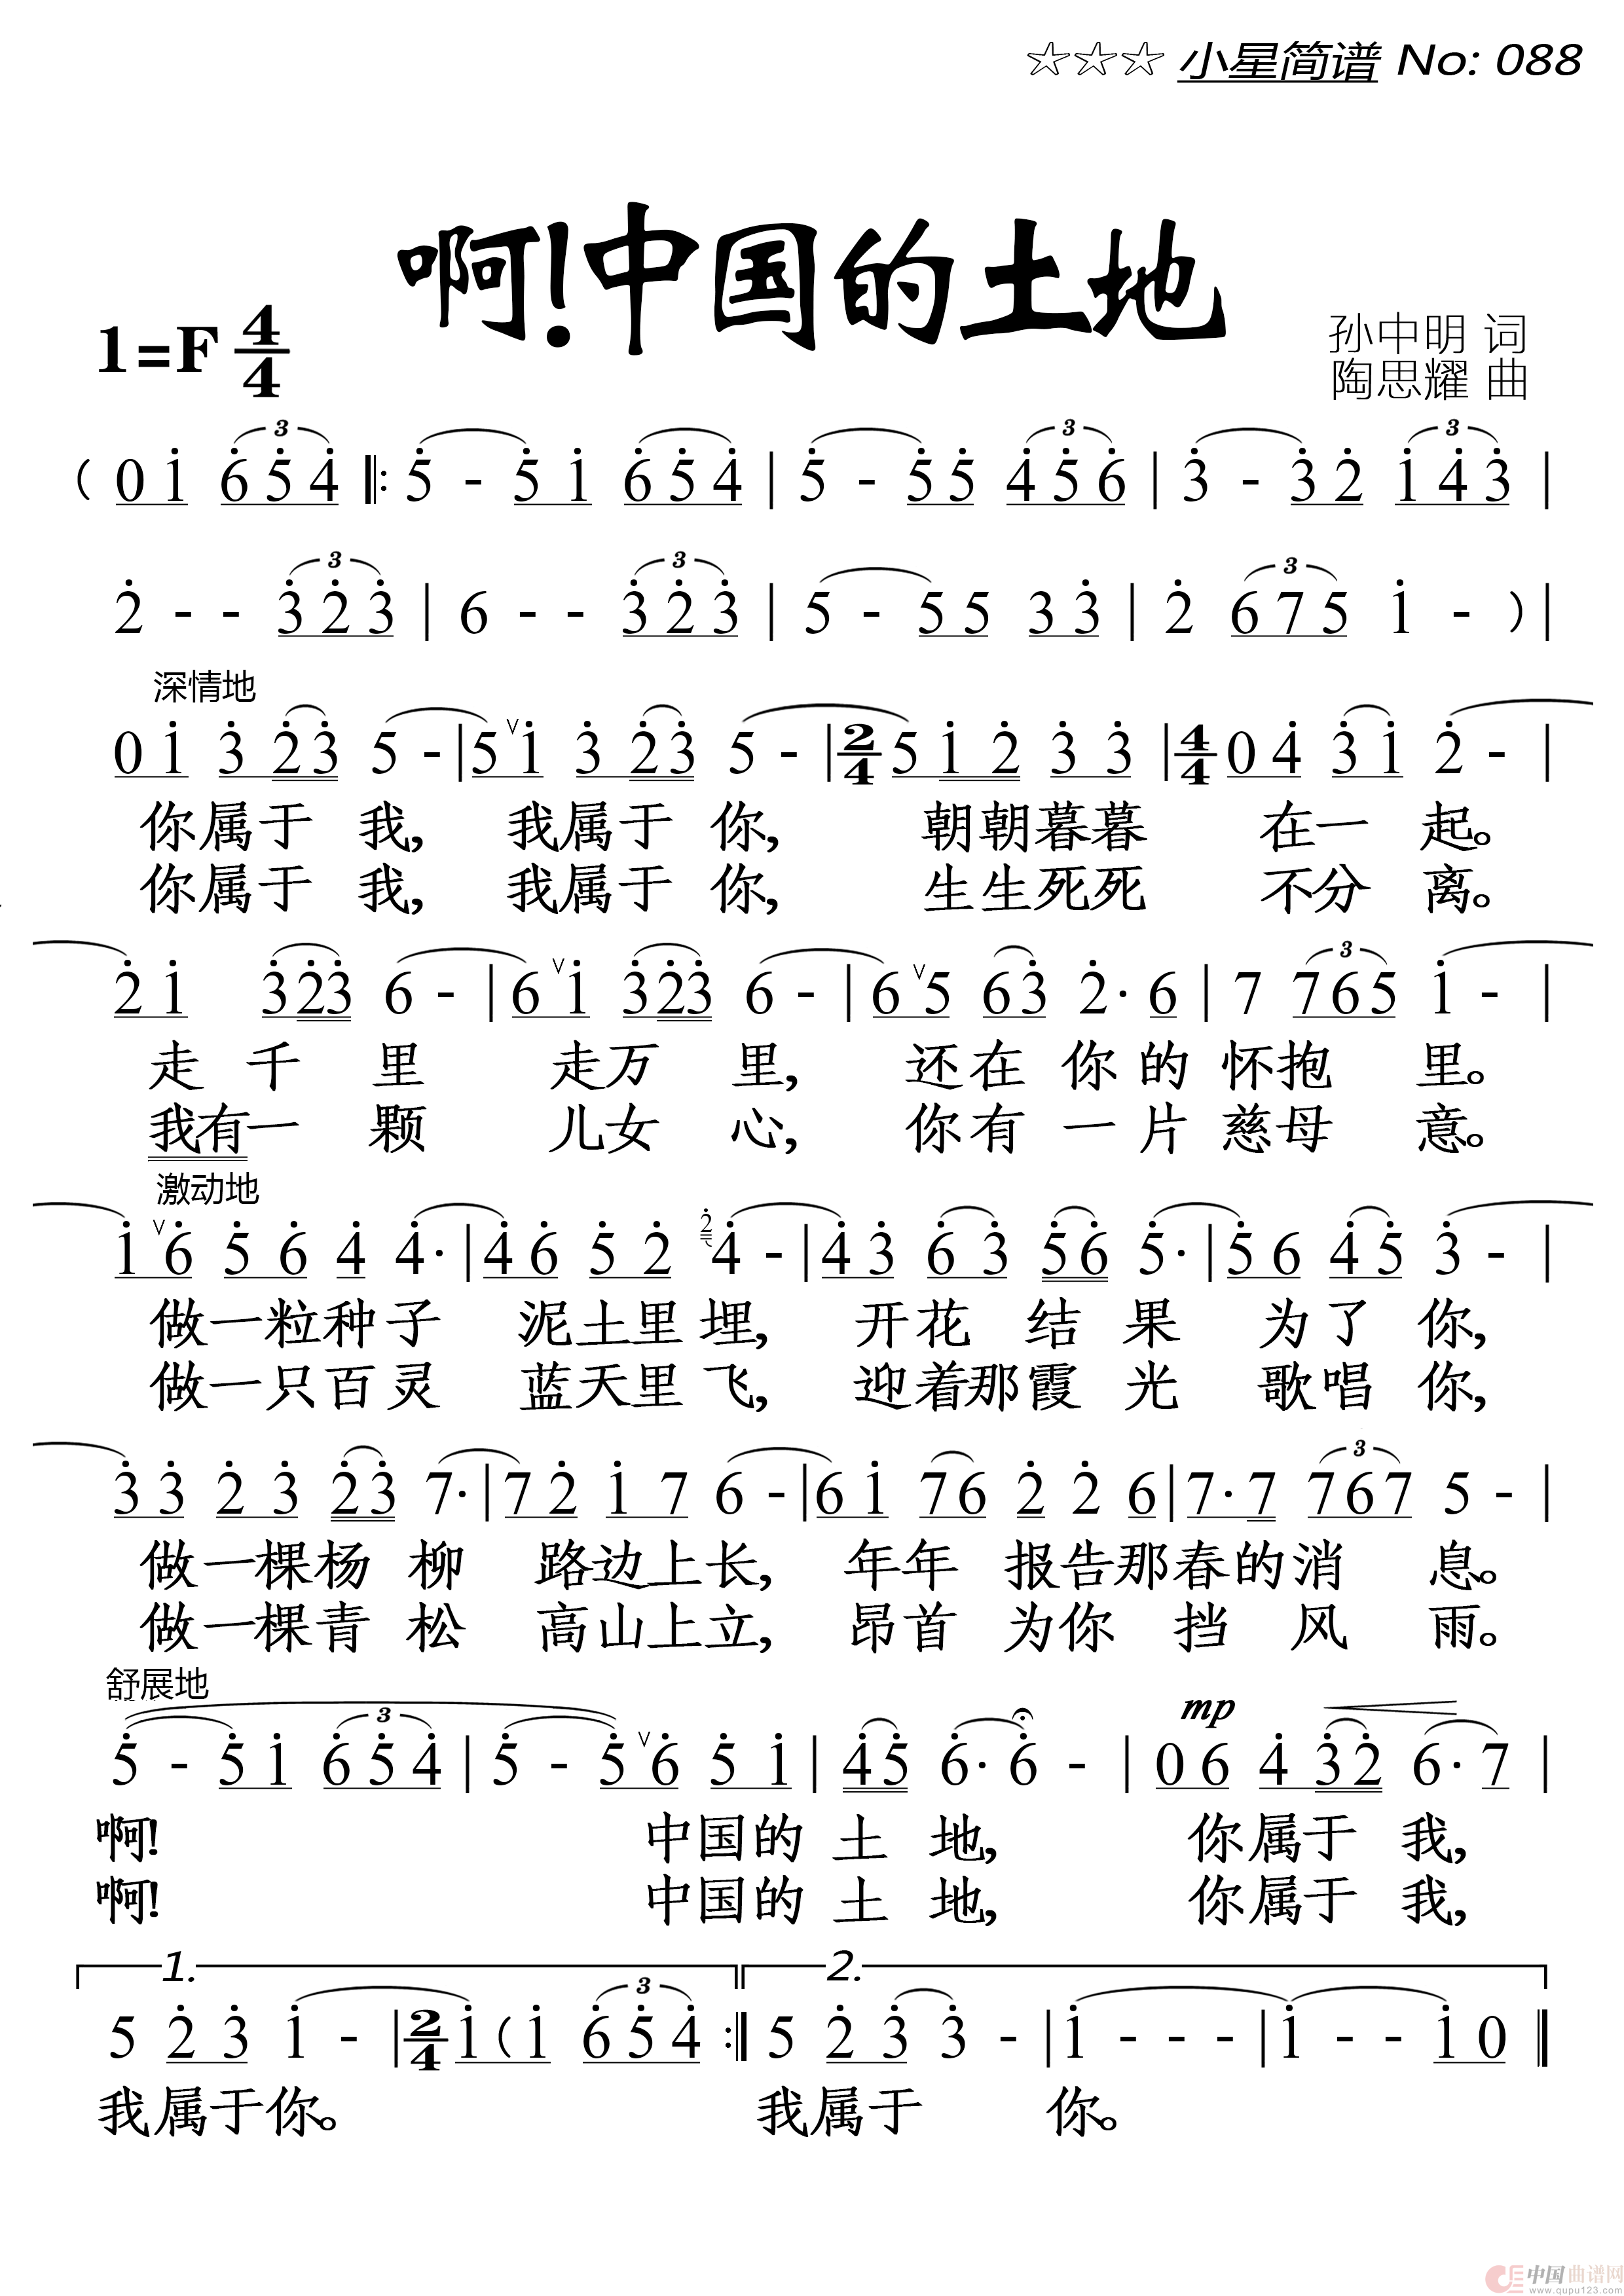 ☆☆☆ 小星简谱 No: 088
啊!中国的土地
1=F 4/4
孙中明 词
陶思耀 曲
(0 1 3 6 5 4 ‖: 5 - 5 1 6 5 4 | 5 - 5 5 3 4 5 6 | 3 - 3 2 3 1 4 3 |
2 - - 3 3 2 3 | 6 - - 3 3 2 3 | 5 - 5 5 3 3 | 2 3 6 7 5 1 - ) |
深情地
0 1 3 2 3 5 - | 5 ∨ 1 3 2 3 5 - | 2/4 5 1 2 3 3 | 4/4 0 4 3 1 2 - |
你属于 我, 我属于 你, 朝朝暮暮 在一 起。
你属于 我, 我属于 你, 生生死死 不分 离。
2 1 3 2 3 6 - | 6 ∨ 1 3 2 3 6 - | 6 ∨ 5 6 3 2· 6 | 7 3 7 6 5 1 - |
走 千 里 走万 里, 还在 你的 怀抱 里。
我有一 颗 儿女 心, 你有 一片 慈母 意。
激动地
1 ∨ 6 5 6 4 4· | 4 6 5 2 2 4 - | 4 3 6 3 5 6 5· | 5 6 4 5 3 - |
做一粒种子 泥土里埋, 开花 结 果 为了 你,
做一只百灵 蓝天里飞, 迎着那霞 光 歌唱 你,
3 3 2 3 2 3 7· | 7 2 1 7 6 - | 6 1 7 6 2 2 6 | 7· 7 3 7 6 7 5 - |
做一棵杨 柳 路边上长, 年年 报告那春的消 息。
做一棵青 松 高山上立, 昂首 为你 挡 风 雨。
舒展地
mp
5 - 5 1 3 6 5 4 | 5 - 5 ∨ 6 5 1 | 4 5 6· 6 - | 0 6 4 3 2 6· 7 |
啊! 中国的 土 地, 你属于 我,
啊! 中国的 土 地, 你属于 我,
1. 2.
5 2 3 1 - | 2/4 1 (1 3 6 5 4 :‖ 5 2 3 3 - | 1 - - - | 1 - - 1 0 ‖
我属于你。 我属于 你。
中国曲谱网
www.qupu123.com